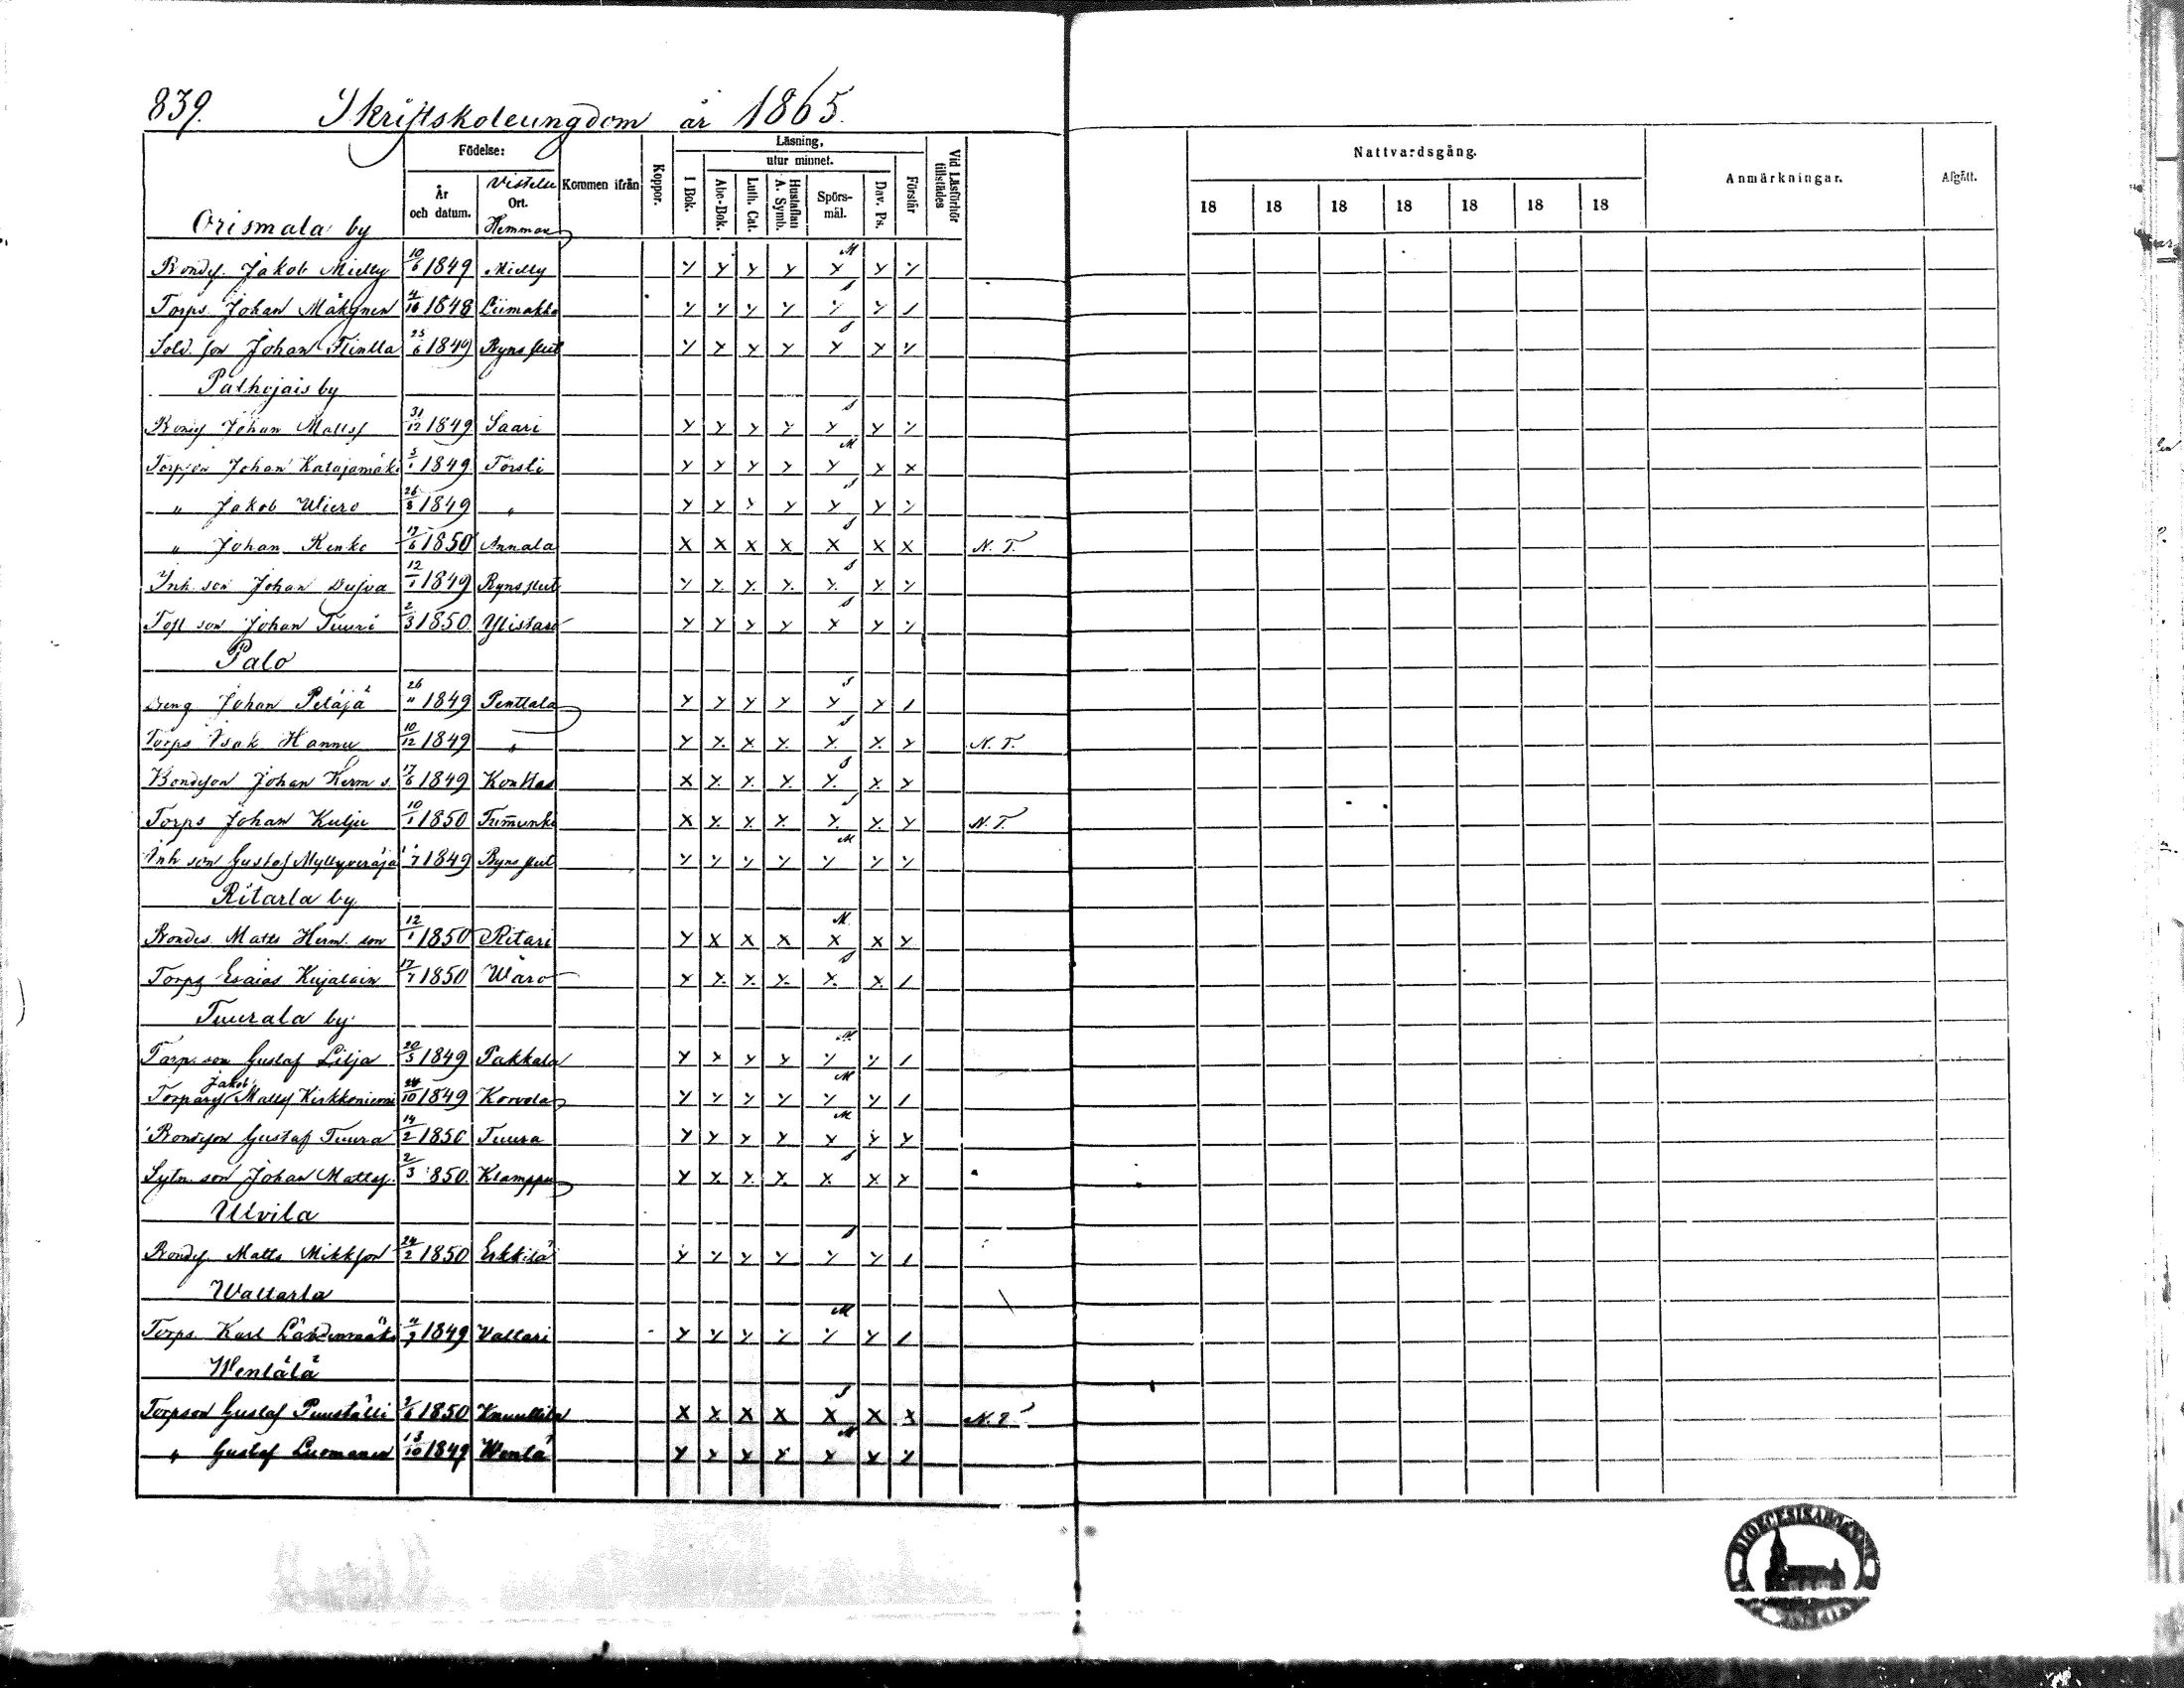 839. Skriftskoleungdom år 1865.
Födelse: År och datum. Vistelse Ort. Hemman Kommen ifrån Koppor. Läsning, utur minnet. I Bok. Abc-Bok. Luth. Cat. Hustaflan A. Symb. Spörs-mål. Dav. Ps. Förstår Vid Läsförhör tillstädes
Nattvardsgång. 18 18 18 18 18 18 18 Anmärkningar. Afgått.
Orismala by
Bondes. Jakob Mielty 10/6 1849 Mielty Y Y Y Y M Y Y Y
Torps. Johan Mäkynen 4/10 1848 Liimakka Y Y Y Y S Y Y /
Sold. son Johan Flinkka 25/6 1849 Byns slut Y Y Y Y S Y Y Y
Palhojais by
Bondes Johan Matts 31/12 1849 Saari Y Y Y Y S Y Y Y
Torpson Johan Katajamäki 5/1 1849 Törsti Y Y Y Y M Y X X
" Jakob 26/8 1849 " Y Y Y Y S Y Y Y
" Johan Renko 17/6 1850 Annala X X X X S X X X N. T.
Inh. son Johan 12/1 1849 Byns slut Y Y Y Y S Y Y Y
Johan Tuuri 2/3 1850 Ylistaro Y Y Y Y S X Y Y
Palo
Dreng Johan Petäjä 26/11 1849 Penttala Y Y Y Y S Y Y /
Torps Isak Hannu 10/12 1849 " Y Y X Y S Y X Y N. T.
Bondeson Johan Herm s. 17/6 1849 Konttas X Y Y Y S Y X Y
Torps Johan Kulju 10/1 1850 X Y X X S Y Y Y N. T.
Inh son Gustaf 1849 Byns slut Y Y Y Y M Y Y Y
Ritarla by
Bondes. Matts Herm. son 12/1 1850 Ritari Y X X X M X X Y
Torps Esaias Kujalain 17/7 1850 Waro Y Y X Y S X X /
Tuurala by
Torp. son Gustaf Lilja 20/3 1849 Pakkala Y X Y Y M Y Y /
Jakob
Torpares Matts Kirkkoniemi 24/10 1849 Korvola Y Y Y Y M Y Y /
Bondeson Gustaf Tuura 14/2 1850 Tuura Y Y Y Y M Y Y Y
Sytn. son Johan Matts. 2/3 1850. Klamppu Y X Y X S X X X
Ulvila
Bondes. Matts Mikkson 24/2 1850 Erkkilä Y Y Y Y S Y Y /
Waltarla
Torps. Karl 1849 Valtari Y Y Y Y M Y Y /
Wentälä
Torpson Gustaf Puuställi 1850 Knuuttila X X X X S X X X N. T
" Gustaf Luomanen 13/10 1849 Wentä Y Y Y Y M X Y Y
DIOECESIS ABOENSIS